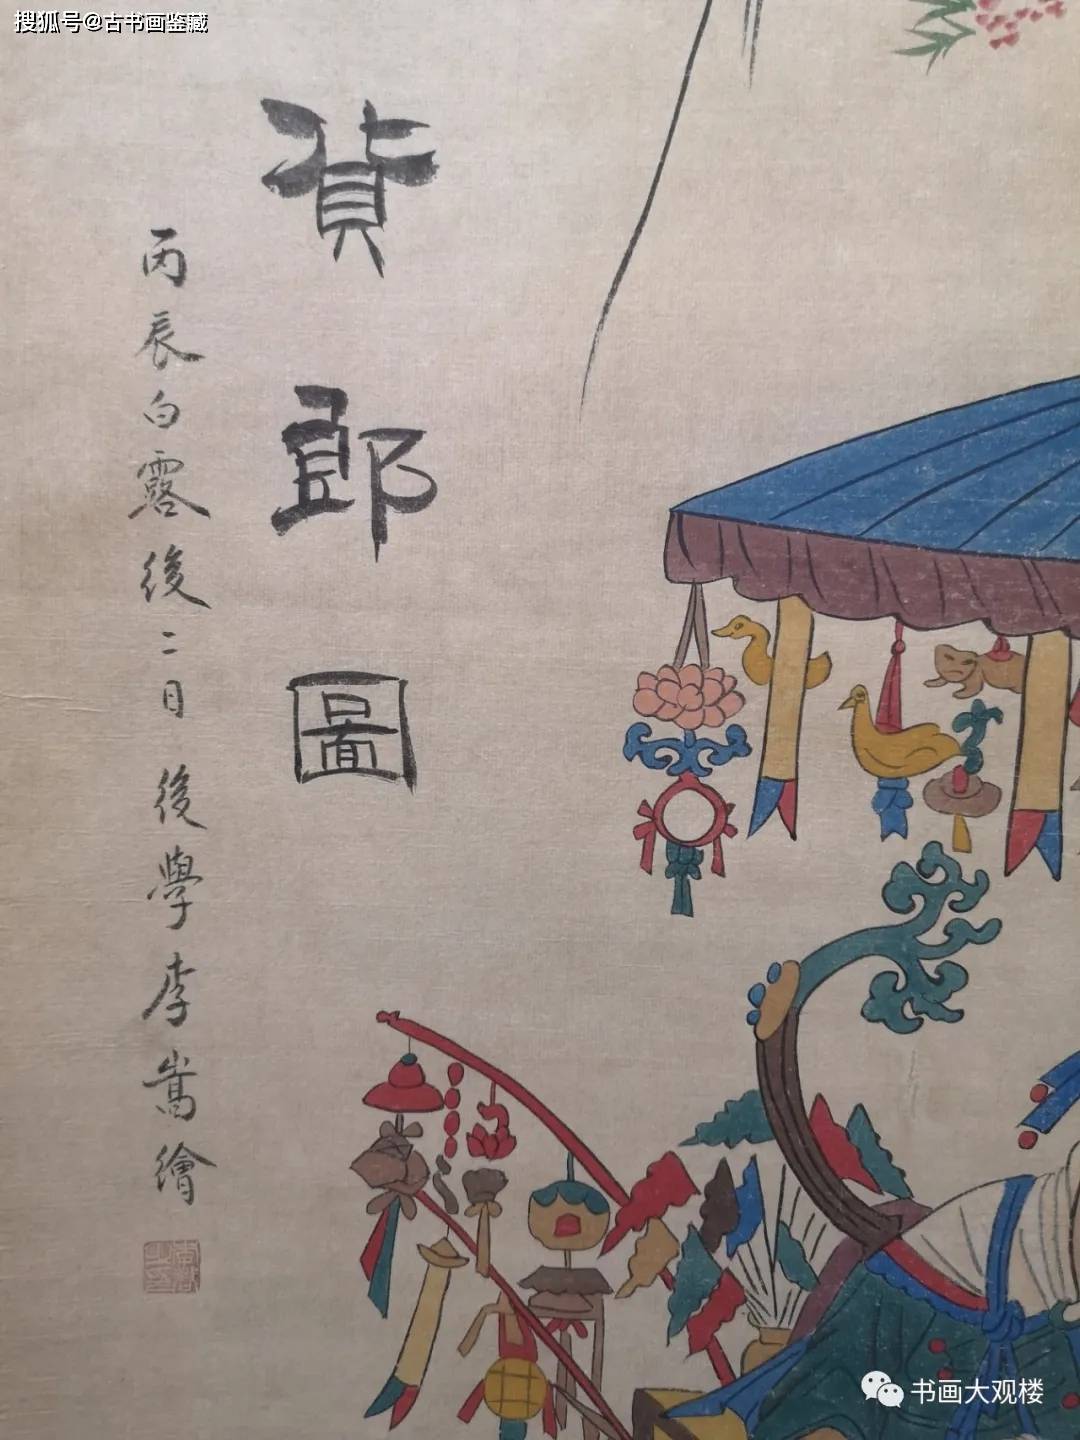 搜狐号@古书画鉴藏
貨郎圖
丙辰白露後二日後學李嵩繪
书画大观楼